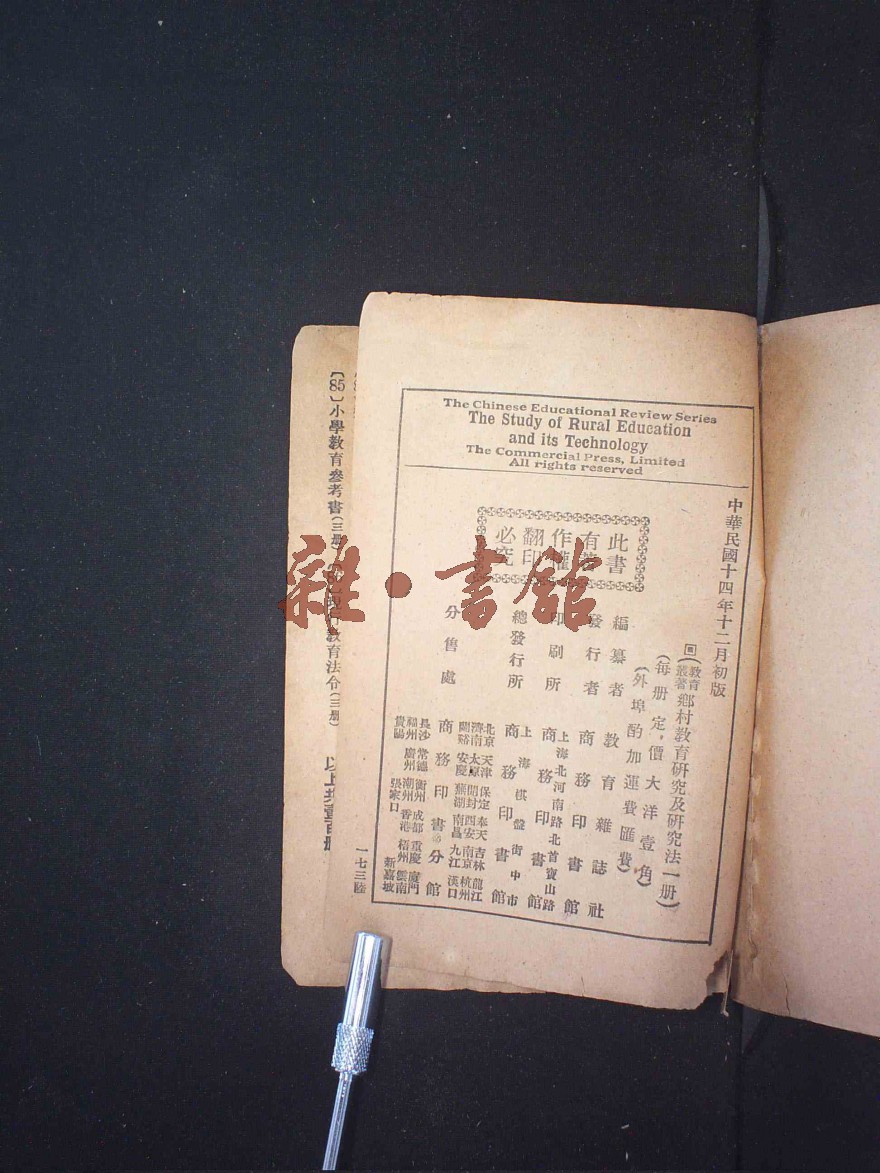 The Chinese Educational Review Series
The Study of Rural Education
and its Technology
The Commercial Press, Limited
All rights reserved
中華民國十四年十二月初版
教育叢著
鄉村教育研究及研究法一册)
(每册定價大洋壹角)
(外埠酌加運費匯費)
此書
有著
作權
翻印
必究
編纂者 教育雜誌社
發行者 商務印書館
印刷所 上海北河南路北首寶山路
商務印書館
總發行所 上海棋盤街中市
商務印書館
分售處 商務印書分館
北京 天津 保定 奉天 吉林 龍江
濟南 太原 開封 西安 南京 杭州
安慶 蕪湖 南昌 九江 漢口
長沙 常德 衡州 成都 重慶 廈門
福州 廣州 潮州 香港 梧州 雲南
貴陽 張家口 新嘉坡
一七三陸
〔85〕小學教育參考書(三册)
現行教育法令(三册)
以上共壹百册
雜·書館